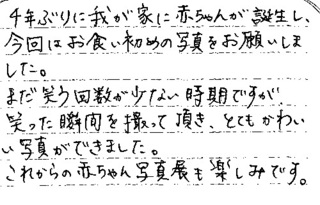 4年ぶりに我が家に赤ちゃんが誕生し、
今回はお食い初めの写真をお願いしま
した。
まだ笑う回数が少ない時期ですが、
笑った瞬間を撮って頂き、とてもかわい
い写真ができました。
これからの赤ちゃん写真展も楽しみです。